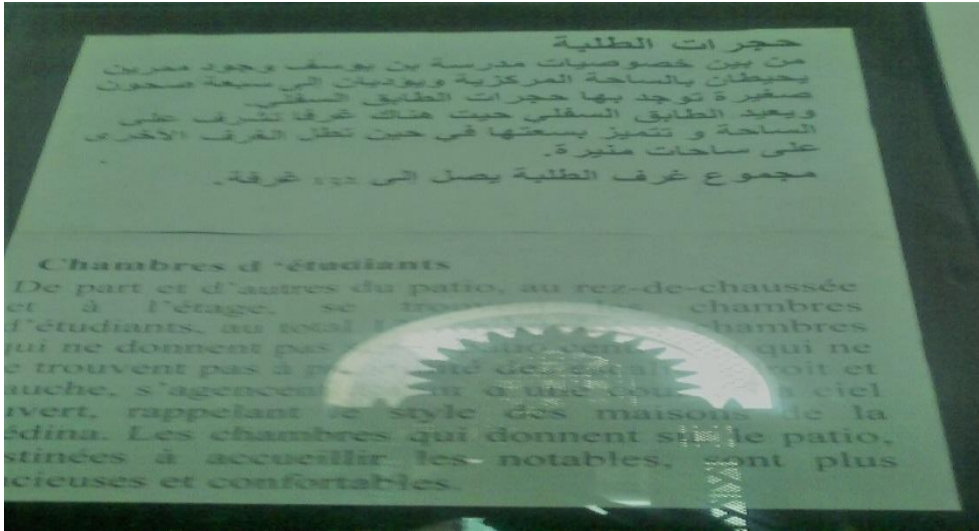 حجرات الطلبة
من بين خصوصيات مدرسة بن يوسف وجود ممرين
يحيطان بالساحة المركزية ويوديان الى سبعة صحون
صغيرة توجد بها حجرات الطابق السفلي
ويعيد الطابق السفلي حيت هناك غرفا تشرف على
الساحة و تتميز بسعتها في حين تطل الغرف الاخرى
على ساحات منيرة.
مجموع غرف الطلبة يصل إلى غرفة.
Chambres d 'étudiants
De part et d'autres du patio, au rez-de-chaussée
et à l'étage, se chambres
d'étudiants, au total chambres
qui ne donnent pas qui ne
trouvent pas à roit et
auche, s'agencent d'une ciel
uvert, rappelant le style des maisons de la
édina. Les chambres qui donnent sur le patio,
stinées à accueillir les notables, sont plus
acieuses et confortables.